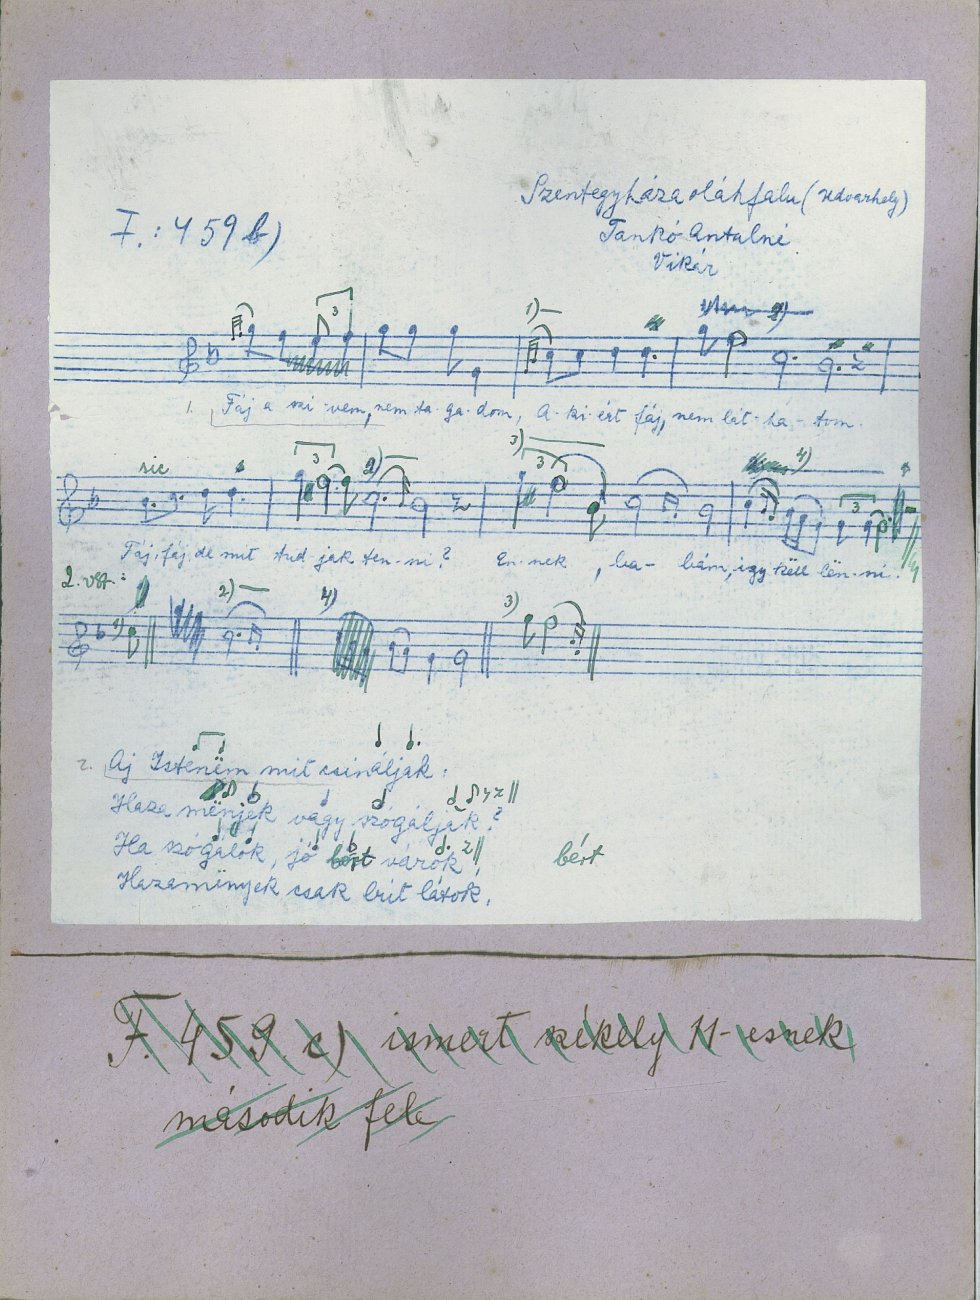 Szentegyházaoláhfalu (Udvarhely)
F.: 459 b)
Tankó Antalné
Vikár
1) 2)
3
1. Fáj a szí-vem, nem ta-ga-dom, A-ki-ért fáj, nem lát-ha-tom.
sic 3 2) 3) 3 4) 3
Fáj, fáj, de mit tud-jak ten-ni? En-nek, ba-bám, így këll lën-ni.
2. vsz:
1) 2) 4) 3)
2. Aj Istenëm mit csináljak:
Haza mënjek vagy szógáljak?
Ha szógálok, jó bért várok, bért
Hazamënyek csak bút látok.
F. 459. c) ismert székely 11-esnek
második fele